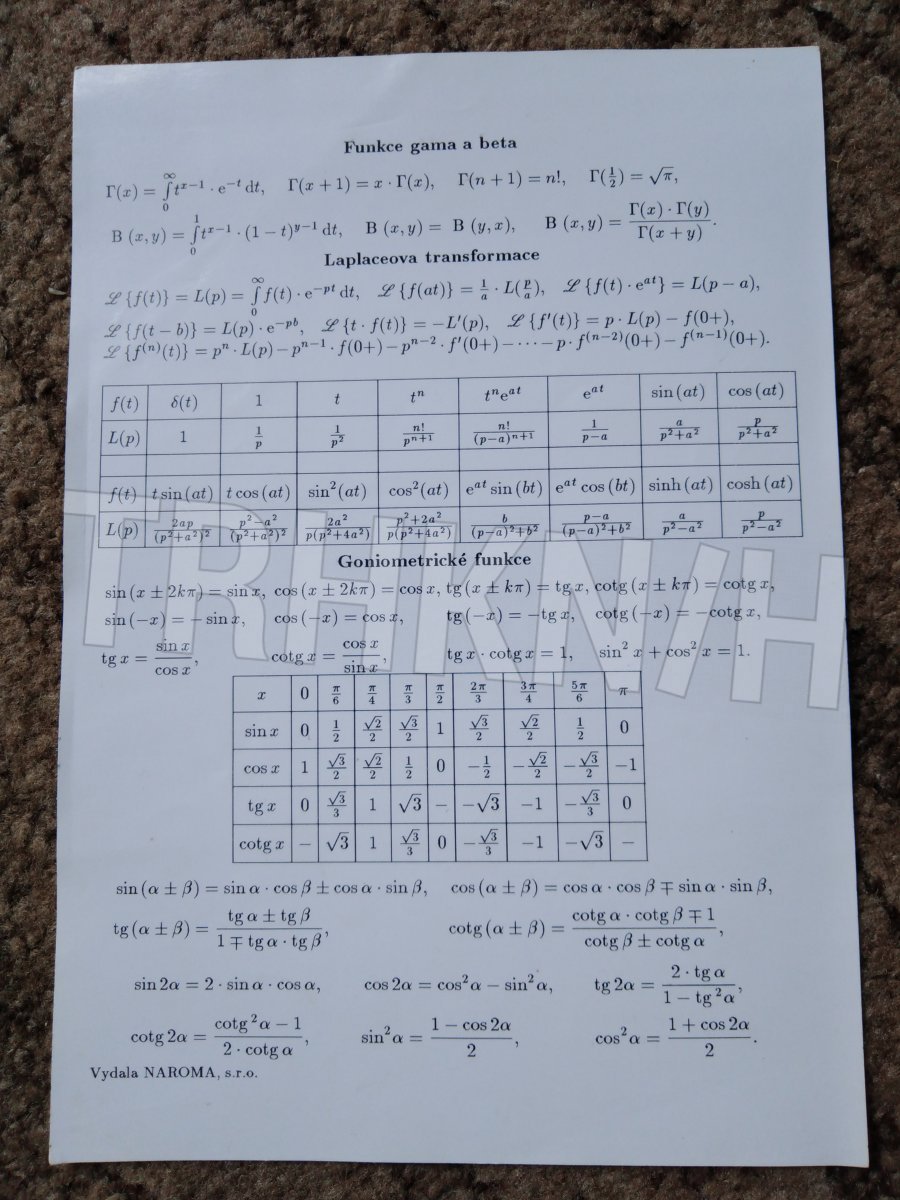 Funkce gama a beta
Γ(x) = ∫₀^∞ t^{x−1} · e^{−t} dt, Γ(x + 1) = x · Γ(x), Γ(n + 1) = n!, Γ(½) = √π,
B (x, y) = ∫₀^1 t^{x−1} · (1 − t)^{y−1} dt, B (x, y) = B (y, x), B (x, y) = Γ(x) · Γ(y) / Γ(x + y).
Laplaceova transformace
ℒ {f(t)} = L(p) = ∫₀^∞ f(t) · e^{−pt} dt, ℒ {f(at)} = 1/a · L(p/a), ℒ {f(t) · e^{at}} = L(p − a),
ℒ {f(t − b)} = L(p) · e^{−pb}, ℒ {t · f(t)} = −L′(p), ℒ {f′(t)} = p · L(p) − f(0+),
ℒ {f^{(n)}(t)} = p^n · L(p) − p^{n−1} · f(0+) − p^{n−2} · f′(0+) − · · · − p · f^{(n−2)}(0+) − f^{(n−1)}(0+).
f(t) δ(t) 1 t t^n t^n e^{at} e^{at} sin (at) cos (at)
L(p) 1 1/p 1/p² n!/p^{n+1} n!/(p−a)^{n+1} 1/(p−a) a/(p²+a²) p/(p²+a²)
f(t) t sin (at) t cos (at) sin² (at) cos² (at) e^{at} sin (bt) e^{at} cos (bt) sinh (at) cosh (at)
L(p) 2ap/(p²+a²)² (p²−a²)/(p²+a²)² 2a²/p(p²+4a²) (p²+2a²)/p(p²+4a²) b/((p−a)²+b²) (p−a)/((p−a)²+b²) a/(p²−a²) p/(p²−a²)
Goniometrické funkce
sin (x ± 2kπ) = sin x, cos (x ± 2kπ) = cos x, tg (x ± kπ) = tg x, cotg (x ± kπ) = cotg x,
sin (−x) = − sin x, cos (−x) = cos x, tg (−x) = −tg x, cotg (−x) = −cotg x,
tg x = sin x / cos x, cotg x = cos x / sin x, tg x · cotg x = 1, sin² x + cos² x = 1.
x 0 π/6 π/4 π/3 π/2 2π/3 3π/4 5π/6 π
sin x 0 1/2 √2/2 √3/2 1 √3/2 √2/2 1/2 0
cos x 1 √3/2 √2/2 1/2 0 −1/2 −√2/2 −√3/2 −1
tg x 0 √3/3 1 √3 − −√3 −1 −√3/3 0
cotg x − √3 1 √3/3 0 −√3/3 −1 −√3 −
sin (α ± β) = sin α · cos β ± cos α · sin β, cos (α ± β) = cos α · cos β ∓ sin α · sin β,
tg (α ± β) = (tg α ± tg β) / (1 ∓ tg α · tg β), cotg (α ± β) = (cotg α · cotg β ∓ 1) / (cotg β ± cotg α),
sin 2α = 2 · sin α · cos α, cos 2α = cos² α − sin² α, tg 2α = 2 · tg α / (1 − tg² α),
cotg 2α = (cotg² α − 1) / (2 · cotg α), sin² α = (1 − cos 2α) / 2, cos² α = (1 + cos 2α) / 2.
Vydala NAROMA, s.r.o.